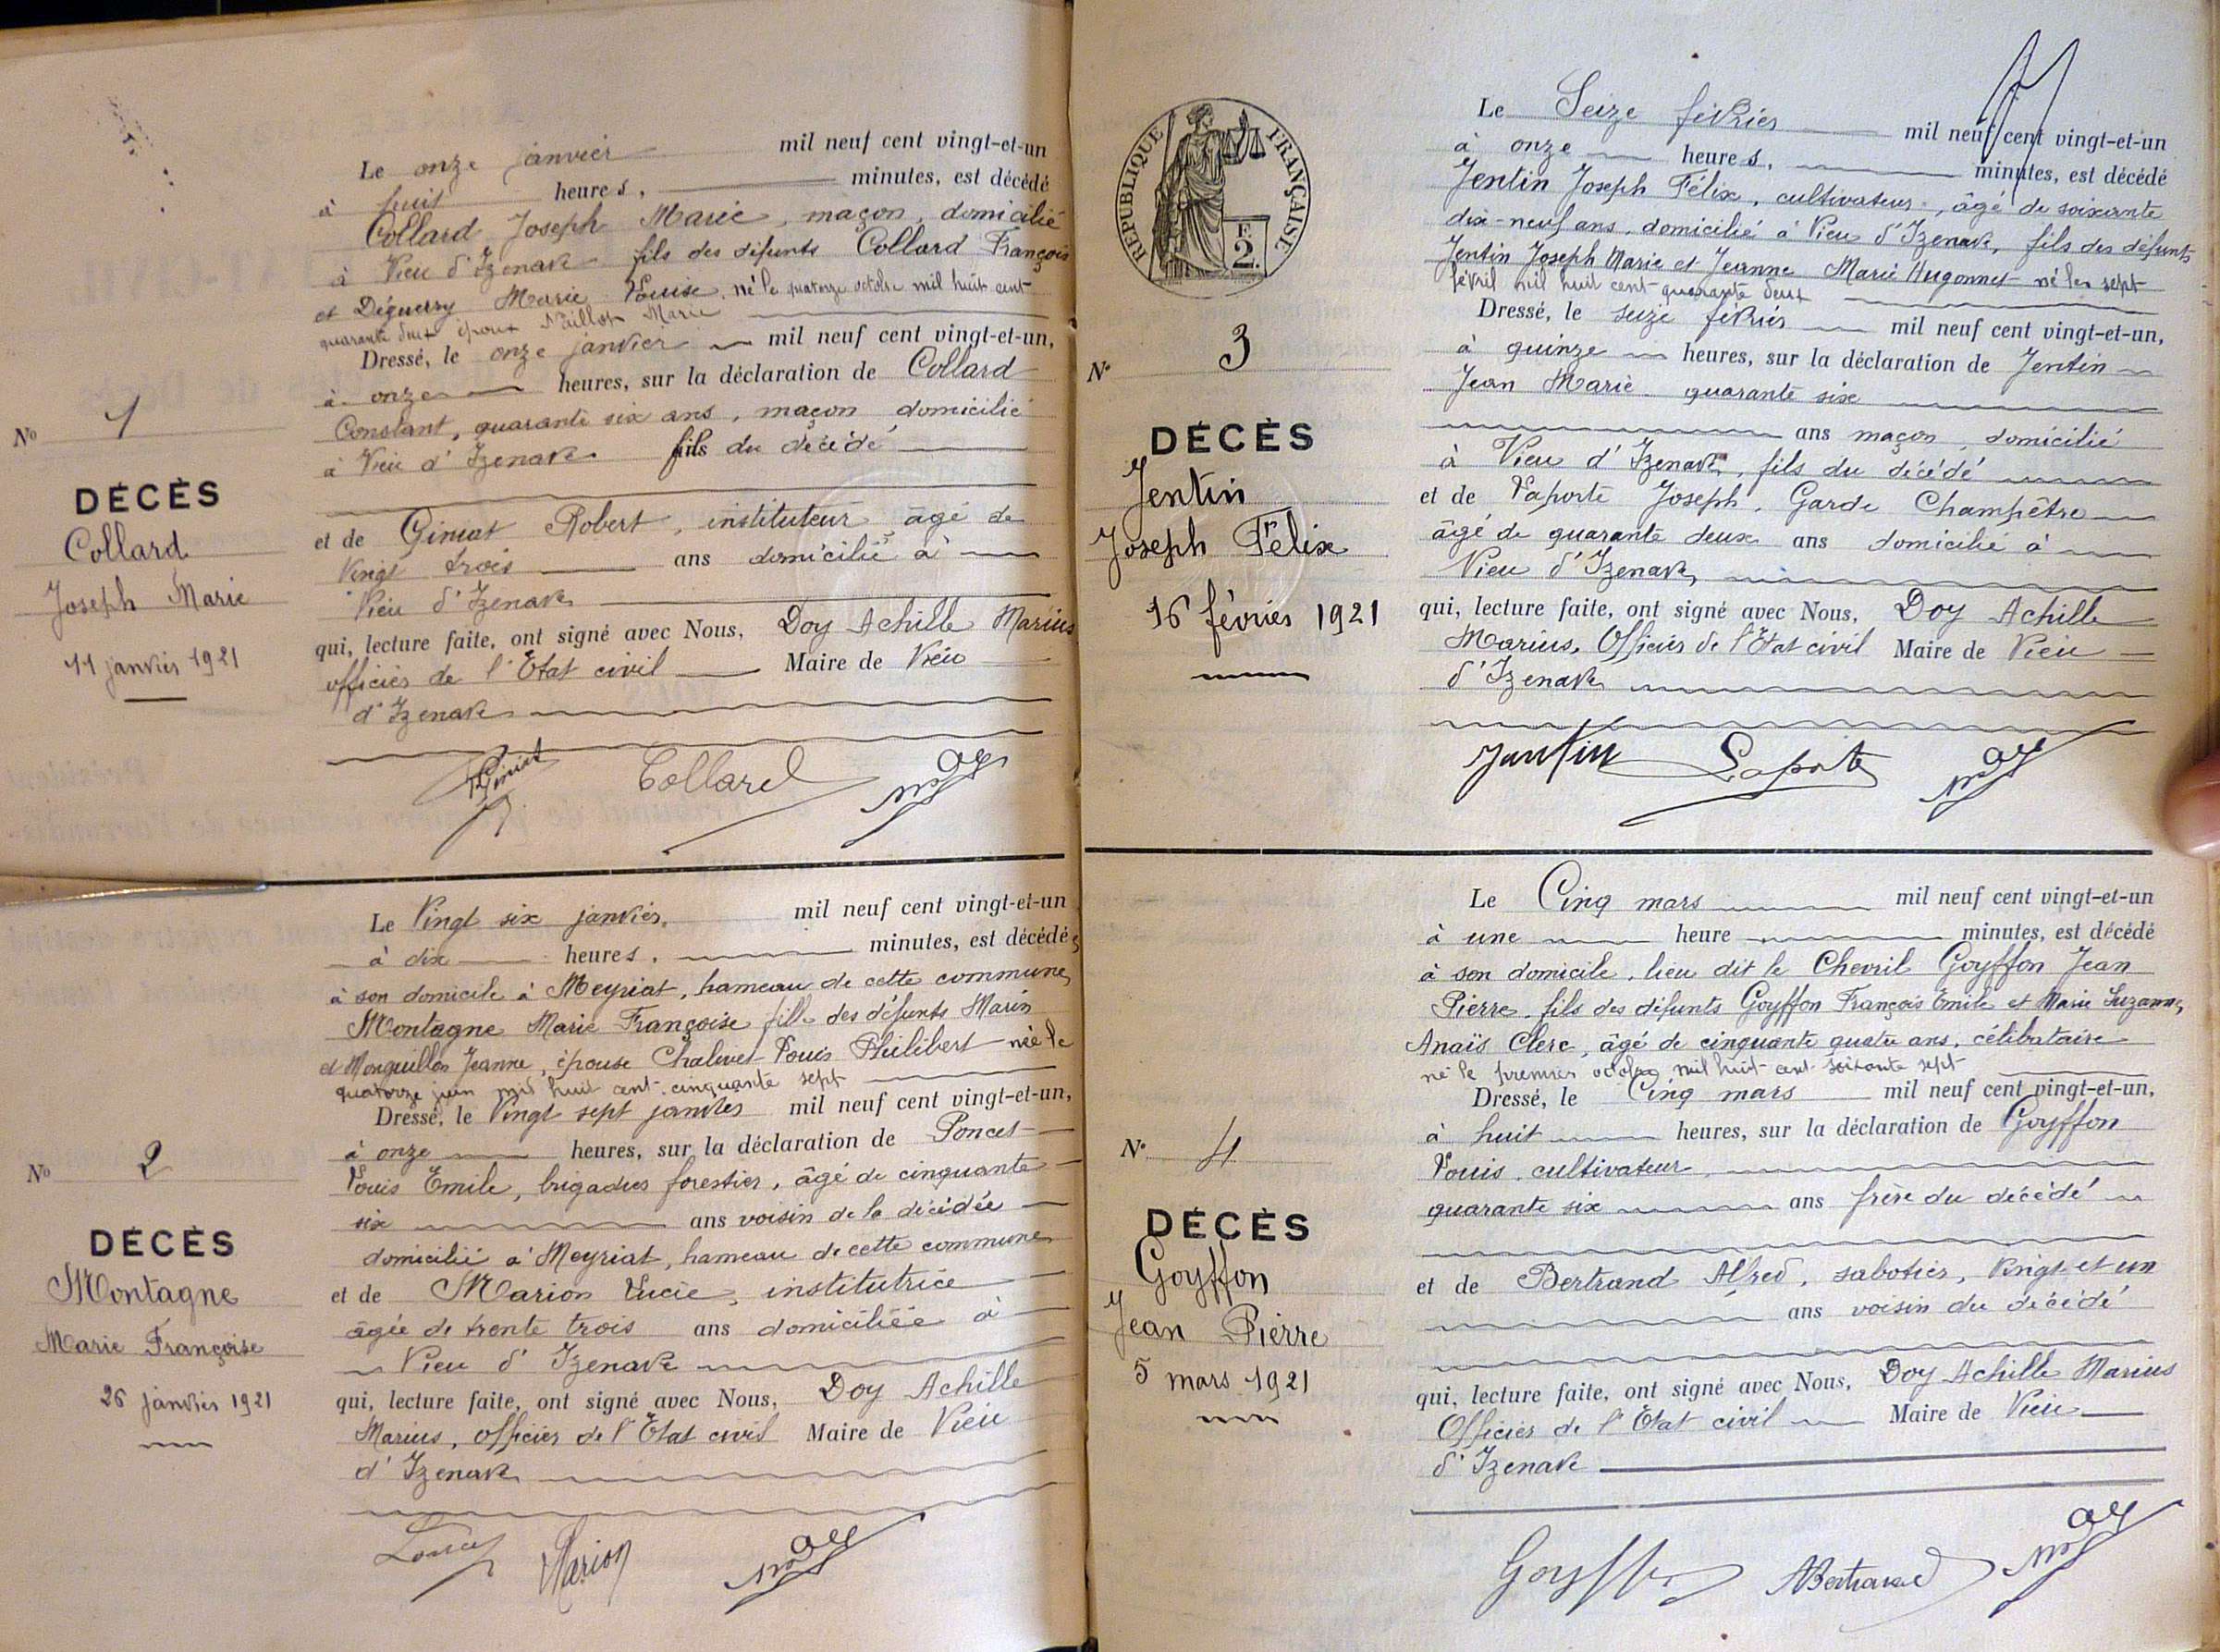 Le onze janvier mil neuf cent vingt-et-un
à huit heures, minutes, est décédé
Collard Joseph Marie, maçon, domicilié
à Vieu d'Izenave fils des défunts Collard François
et Déguerry Marie Louise, né le quatorze octobre mil huit cent
quarante deux époux Maillot Marie
Dressé, le onze janvier mil neuf cent vingt-et-un,
à onze heures, sur la déclaration de Collard
Constant, quarante six ans, maçon domicilié
à Vieu d'Izenave fils du décédé
et de Giniat Robert, instituteur, âgé de
Vingt trois ans domicilié à
Vieu d'Izenave
qui, lecture faite, ont signé avec Nous, Doy Achille Marius
officier de l'Etat civil Maire de Vieu
d'Izenave
Giniat Collard Doy
N° 1
DÉCÈS
Collard
Joseph Marie
11 janvier 1921
Le Vingt six janvier, mil neuf cent vingt-et-un
à dix heures, minutes, est décédée
à son domicile à Meyriat, hameau de cette commune,
Montagne Marie Françoise fille des défunts Marin
et Monguillon Jeanne, épouse Chalivet Louis Philibert née le
quatorze juin mil huit cent cinquante sept
Dressé, le Vingt sept janvier mil neuf cent vingt-et-un,
à onze heures, sur la déclaration de Poncet
Louis Emile, brigadier forestier, âgé de cinquante
six ans voisin de la décédée
domicilié à Meyriat, hameau de cette commune,
et de Marion Lucie, institutrice
âgée de trente trois ans domiciliée à
Vieu d'Izenave
qui, lecture faite, ont signé avec Nous, Doy Achille
Marius, officier de l'Etat civil Maire de Vieu
d'Izenave
Poncet Marion Doy
N° 2
DÉCÈS
Montagne
Marie Françoise
26 janvier 1921
RÉPUBLIQUE FRANÇAISE
F.
2.
Le Seize février mil neuf cent vingt-et-un
à onze heures, minutes, est décédé
Jentin Joseph Félix, cultivateur, âgé de soixante
dix-neuf ans, domicilié à Vieu d'Izenave, fils des défunts
Jentin Joseph Marie et Jeanne Marie Hugonnet né le sept
février mil huit cent quarante deux
Dressé, le seize février mil neuf cent vingt-et-un,
à quinze heures, sur la déclaration de Jentin
Jean Marie quarante six
ans maçon, domicilié
à Vieu d'Izenave, fils du décédé
et de Laporte Joseph, Garde Champêtre
âgé de quarante deux ans domicilié à
Vieu d'Izenave,
qui, lecture faite, ont signé avec Nous, Doy Achille
Marius, Officier de l'Etat civil Maire de Vieu
d'Izenave
Jantin Laporte Doy
N° 3
DÉCÈS
Jentin
Joseph Félix
16 février 1921
Le Cinq mars mil neuf cent vingt-et-un
à une heure minutes, est décédé
à son domicile, lieu dit le Chevril Goyffon Jean
Pierre, fils des défunts Goyffon François Emile et Marie Suzanne,
Anaïs Clerc, âgé de cinquante quatre ans, célibataire
né le premier octobre mil huit cent soixante sept
Dressé, le Cinq mars mil neuf cent vingt-et-un,
à huit heures, sur la déclaration de Goyffon
Louis, cultivateur,
quarante six ans frère du décédé
et de Bertrand Alfred, sabotier, vingt et un
ans voisin du décédé
qui, lecture faite, ont signé avec Nous, Doy Achille Marius
Officier de l'Etat civil Maire de Vieu
d'Izenave
Goyffon ABertrand Doy
N° 4
DÉCÈS
Goyffon
Jean Pierre
5 mars 1921